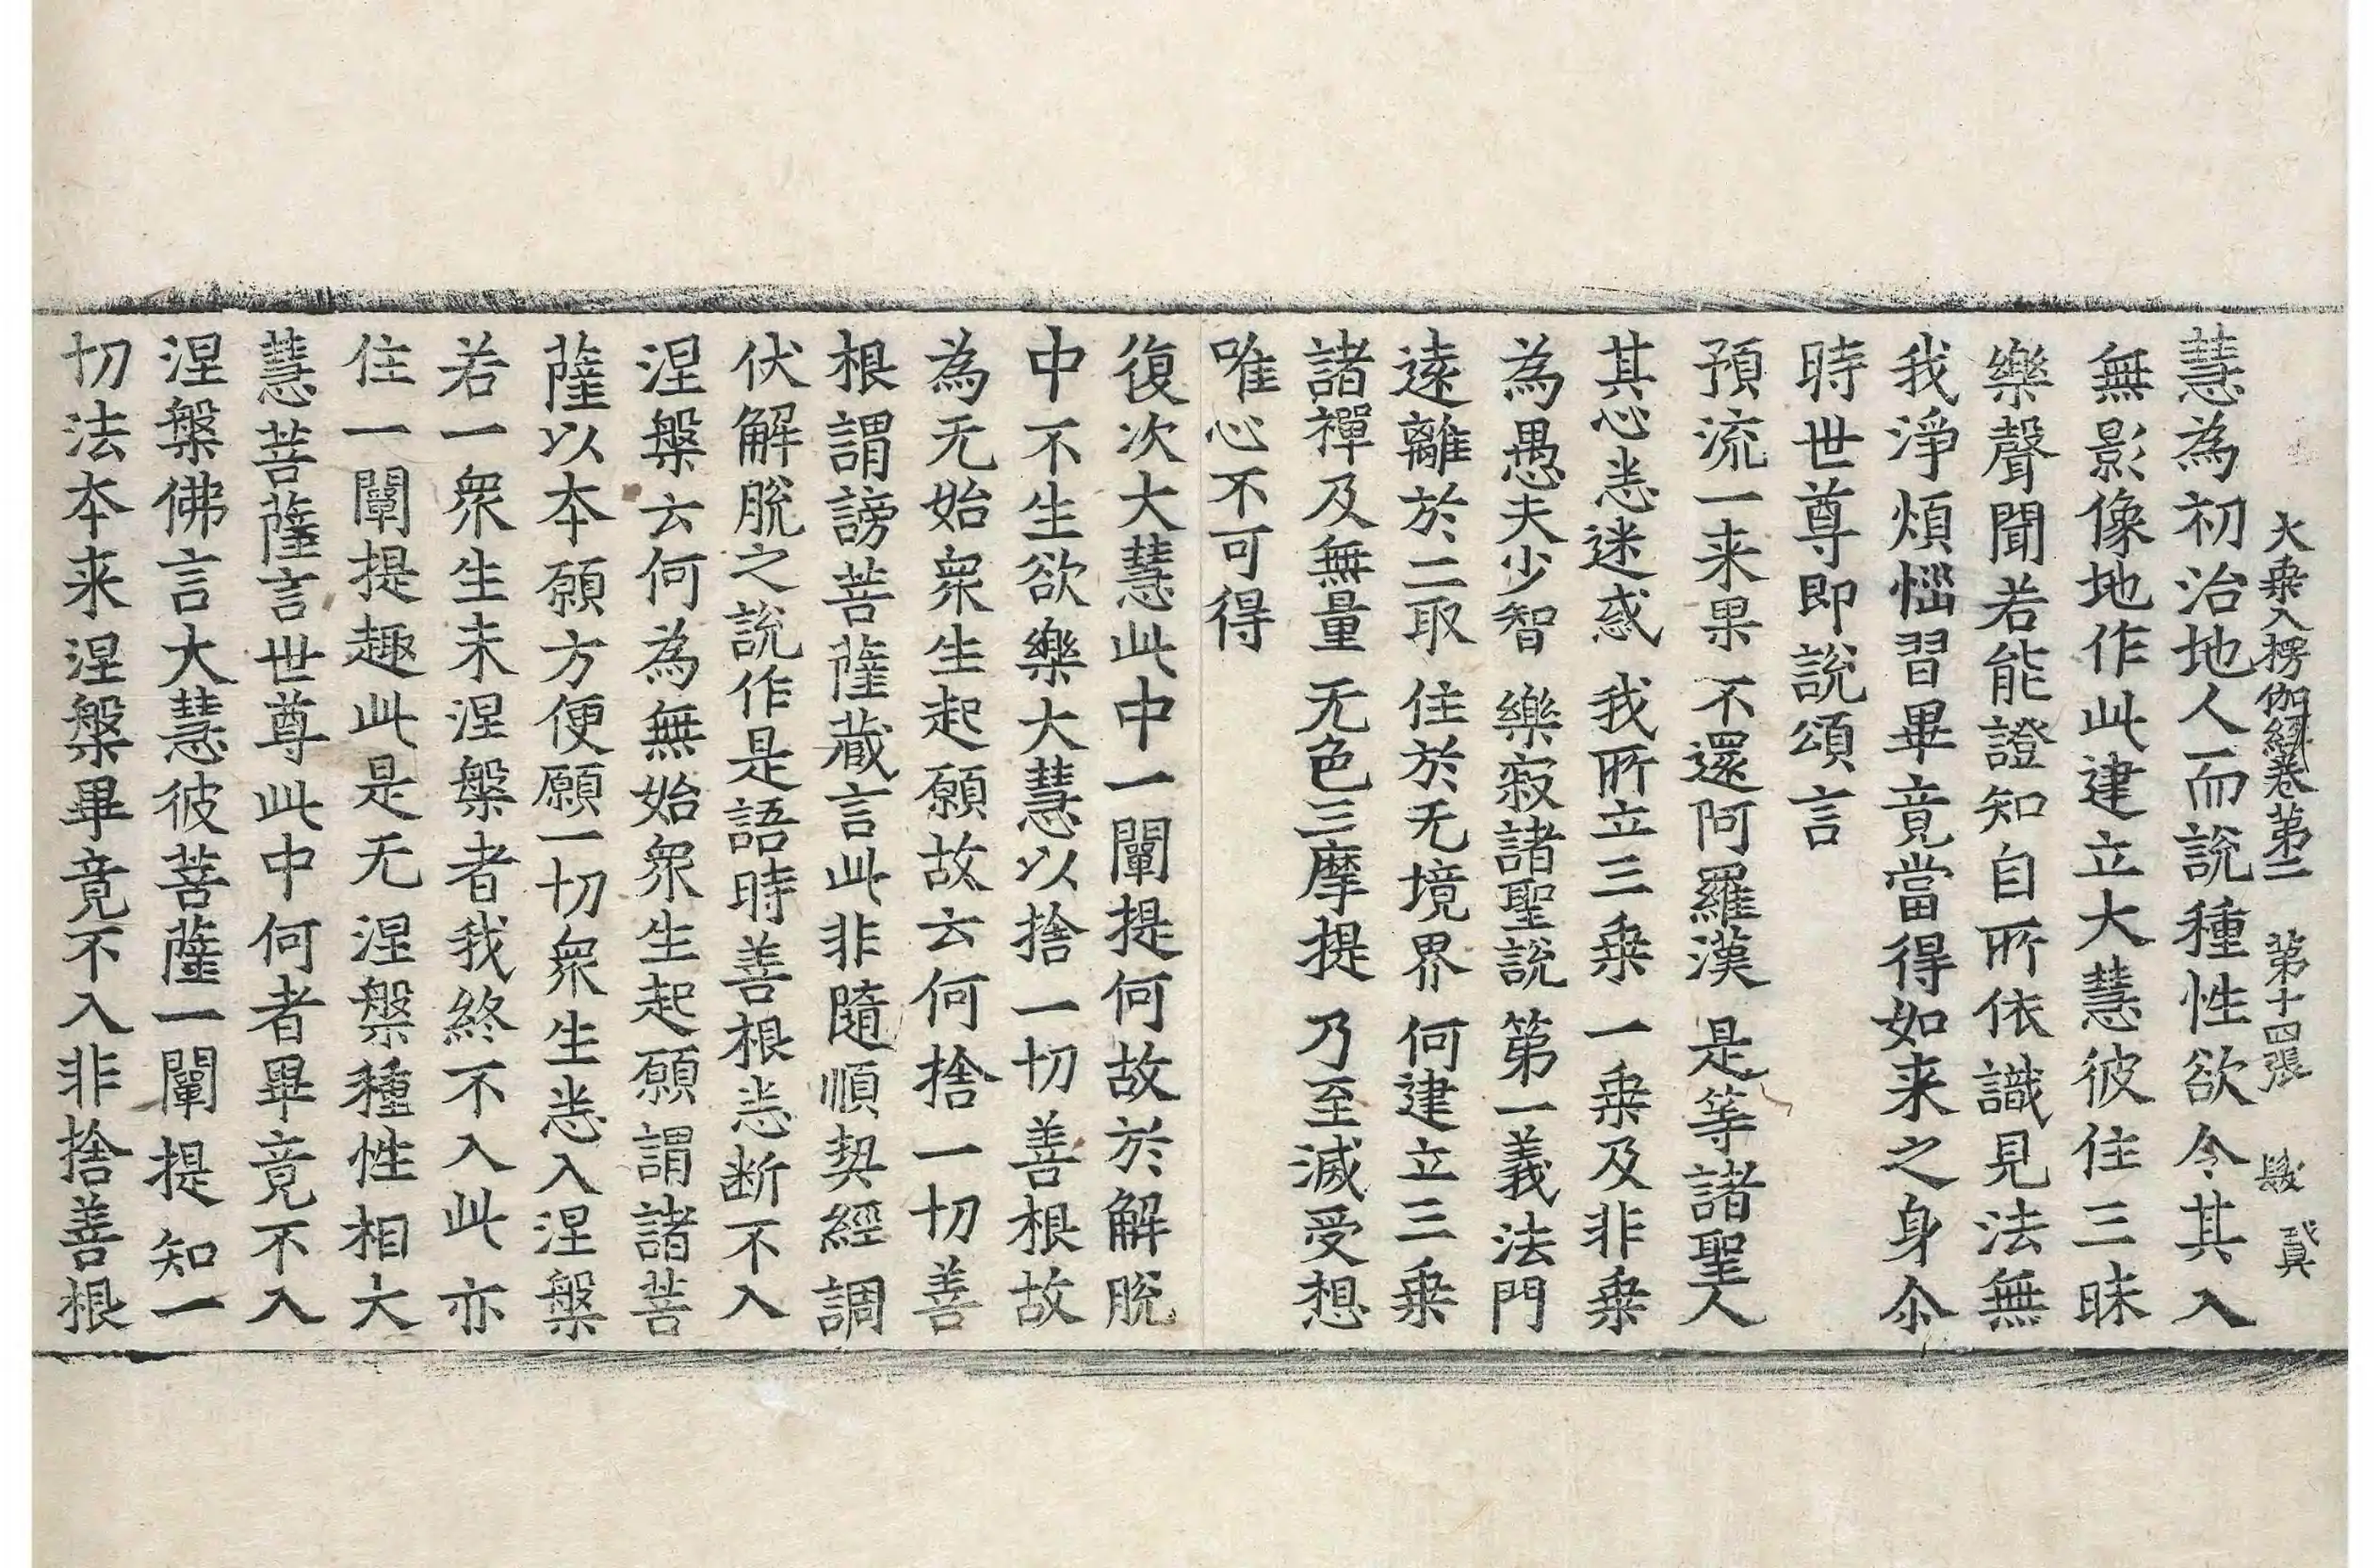 大乗入楞伽經卷第二 第十四張
慧為初治地人而說種性欲令其入
無影像地作此建立大慧彼住三昧
樂聲聞若能證知自所依識見法無
我淨煩惱習畢竟當得如来之身尒
時世尊即說頌言
預流一来果 不還阿羅漢 是等諸聖人
其心悉迷惑 我所立三乗 一乗及非乗
為愚夫少智 樂寂諸聖說 第一義法門
遠離於二取 住於无境界 何建立三乗
諸禪及無量 无色三摩提 乃至滅受想
唯心不可得
復次大慧此中一闡提何故於解脫
中不生欲樂大慧以捨一切善根故
為无始衆生起願故云何捨一切善
根謂謗菩薩藏言此非隨順契經調
伏解脫之說作是語時善根悉断不入
涅槃云何為無始衆生起願謂諸菩
薩以本願方便願一切衆生悉入涅槃
若一衆生未涅槃者我終不入此亦
住一闡提趣此是无涅槃種性相大
慧菩薩言世尊此中何者畢竟不入
涅槃佛言大慧彼菩薩一闡提知一
切法本来涅槃畢竟不入非捨善根